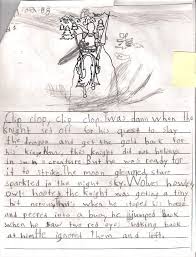 Clip clop, Clip clop. It was dawn when the
knight set off for his quest to slay
the dragon and get the gold back for
his kingdom. This knight does not believe
in such a creature. But he was ready for
it to strike. The moon gleamed, stars
sparkled in the night sky. Wolves howled,
owls hooted. The knight was getting a tiny
bit nervous. When he stoped his horse
and peered into a bush, he jumped back
when he saw two red eyes looking back
at him. He ignored them and left.